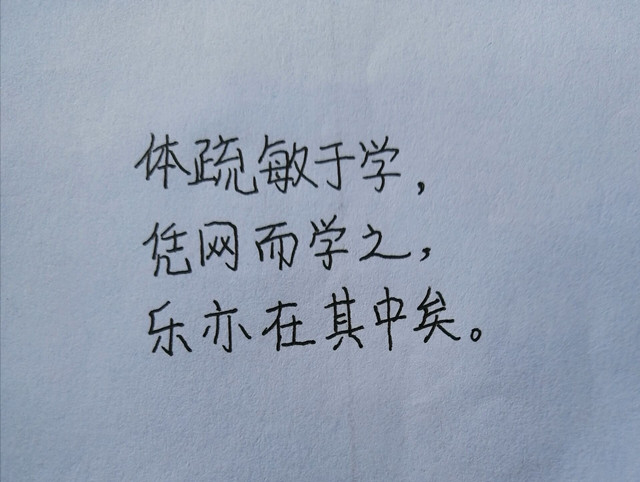 体疏敏于学，
凭网而学之，
乐亦在其中矣。